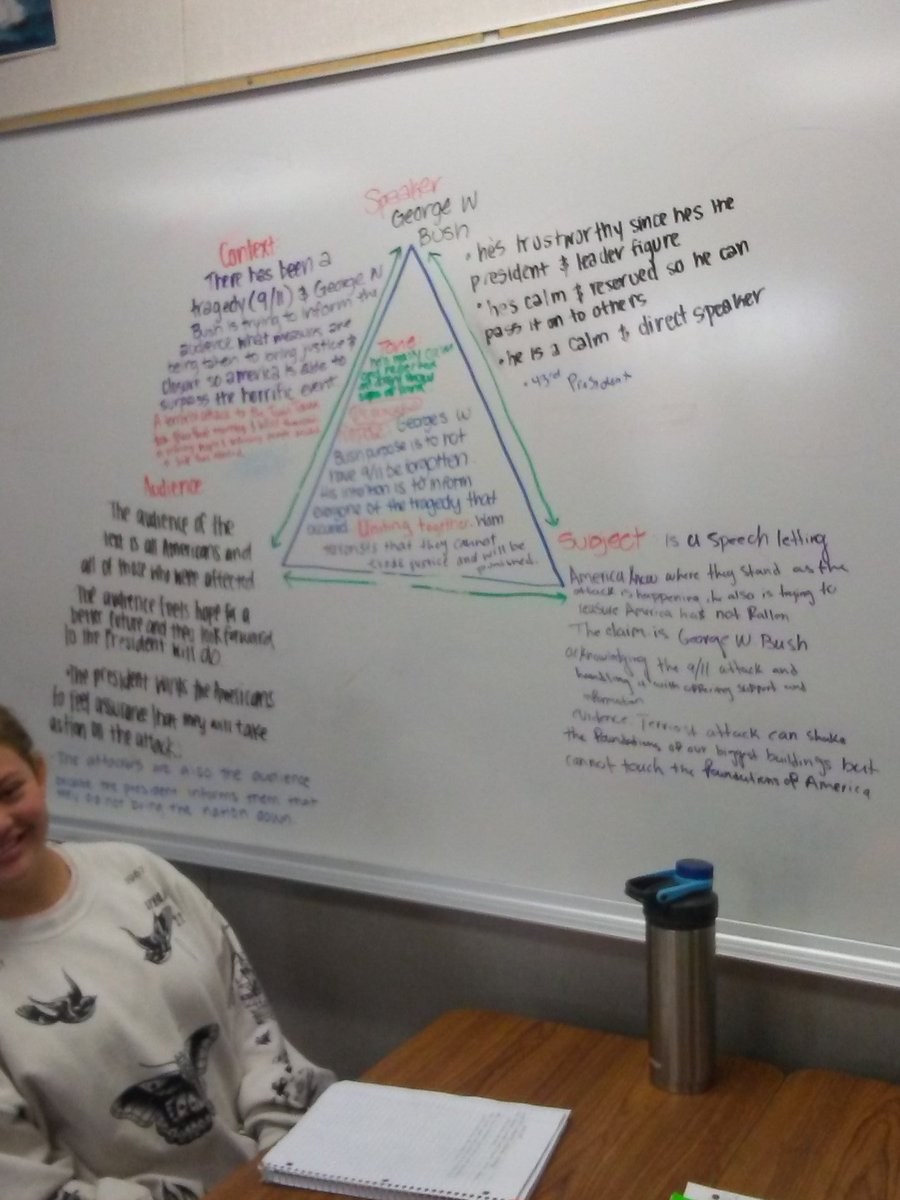 Speaker
George W
Bush
• he's trustworthy since hes the
president & leader figure
• hes calm & reserved so he can
pass it on to others
• he is a calm & direct speaker
• 43rd President
Context
There has been a
tragedy (9/11) & George W
Bush is trying to inform the
audience what measures are
being taken to bring justice &
closure so america is able to
surpass the horrific event.
A terrorist attack to the Twin Towers
Tone
signs of
Purpose
George's W
Bush purpose is to not
have 9/11 be forgotten.
His intention is to inform
everyone of the tragedy that
occured. Uniting together. Warn
terrorists that they cannot
justice and will be
punished.
Audience
The audience of the
text is all Americans and
all of those who were affected
The audience feels hope for a
better future and they look forward
to the President will do.
• The president wants the Americans
to feel assurance that they will take
action on the attack.
The attackers are also the audience
because the president informs them that
they do not bring the nation down
Subject is a speech letting
America know where they stand as the
attack is happening, he also is trying to
America has not fallen
The claim is George W Bush
acknowledging the 9/11 attack and
handling it with offering support and
information
evidence Terriost attack can shake
the foundations of our biggest buildings but
cannot touch the foundations of America